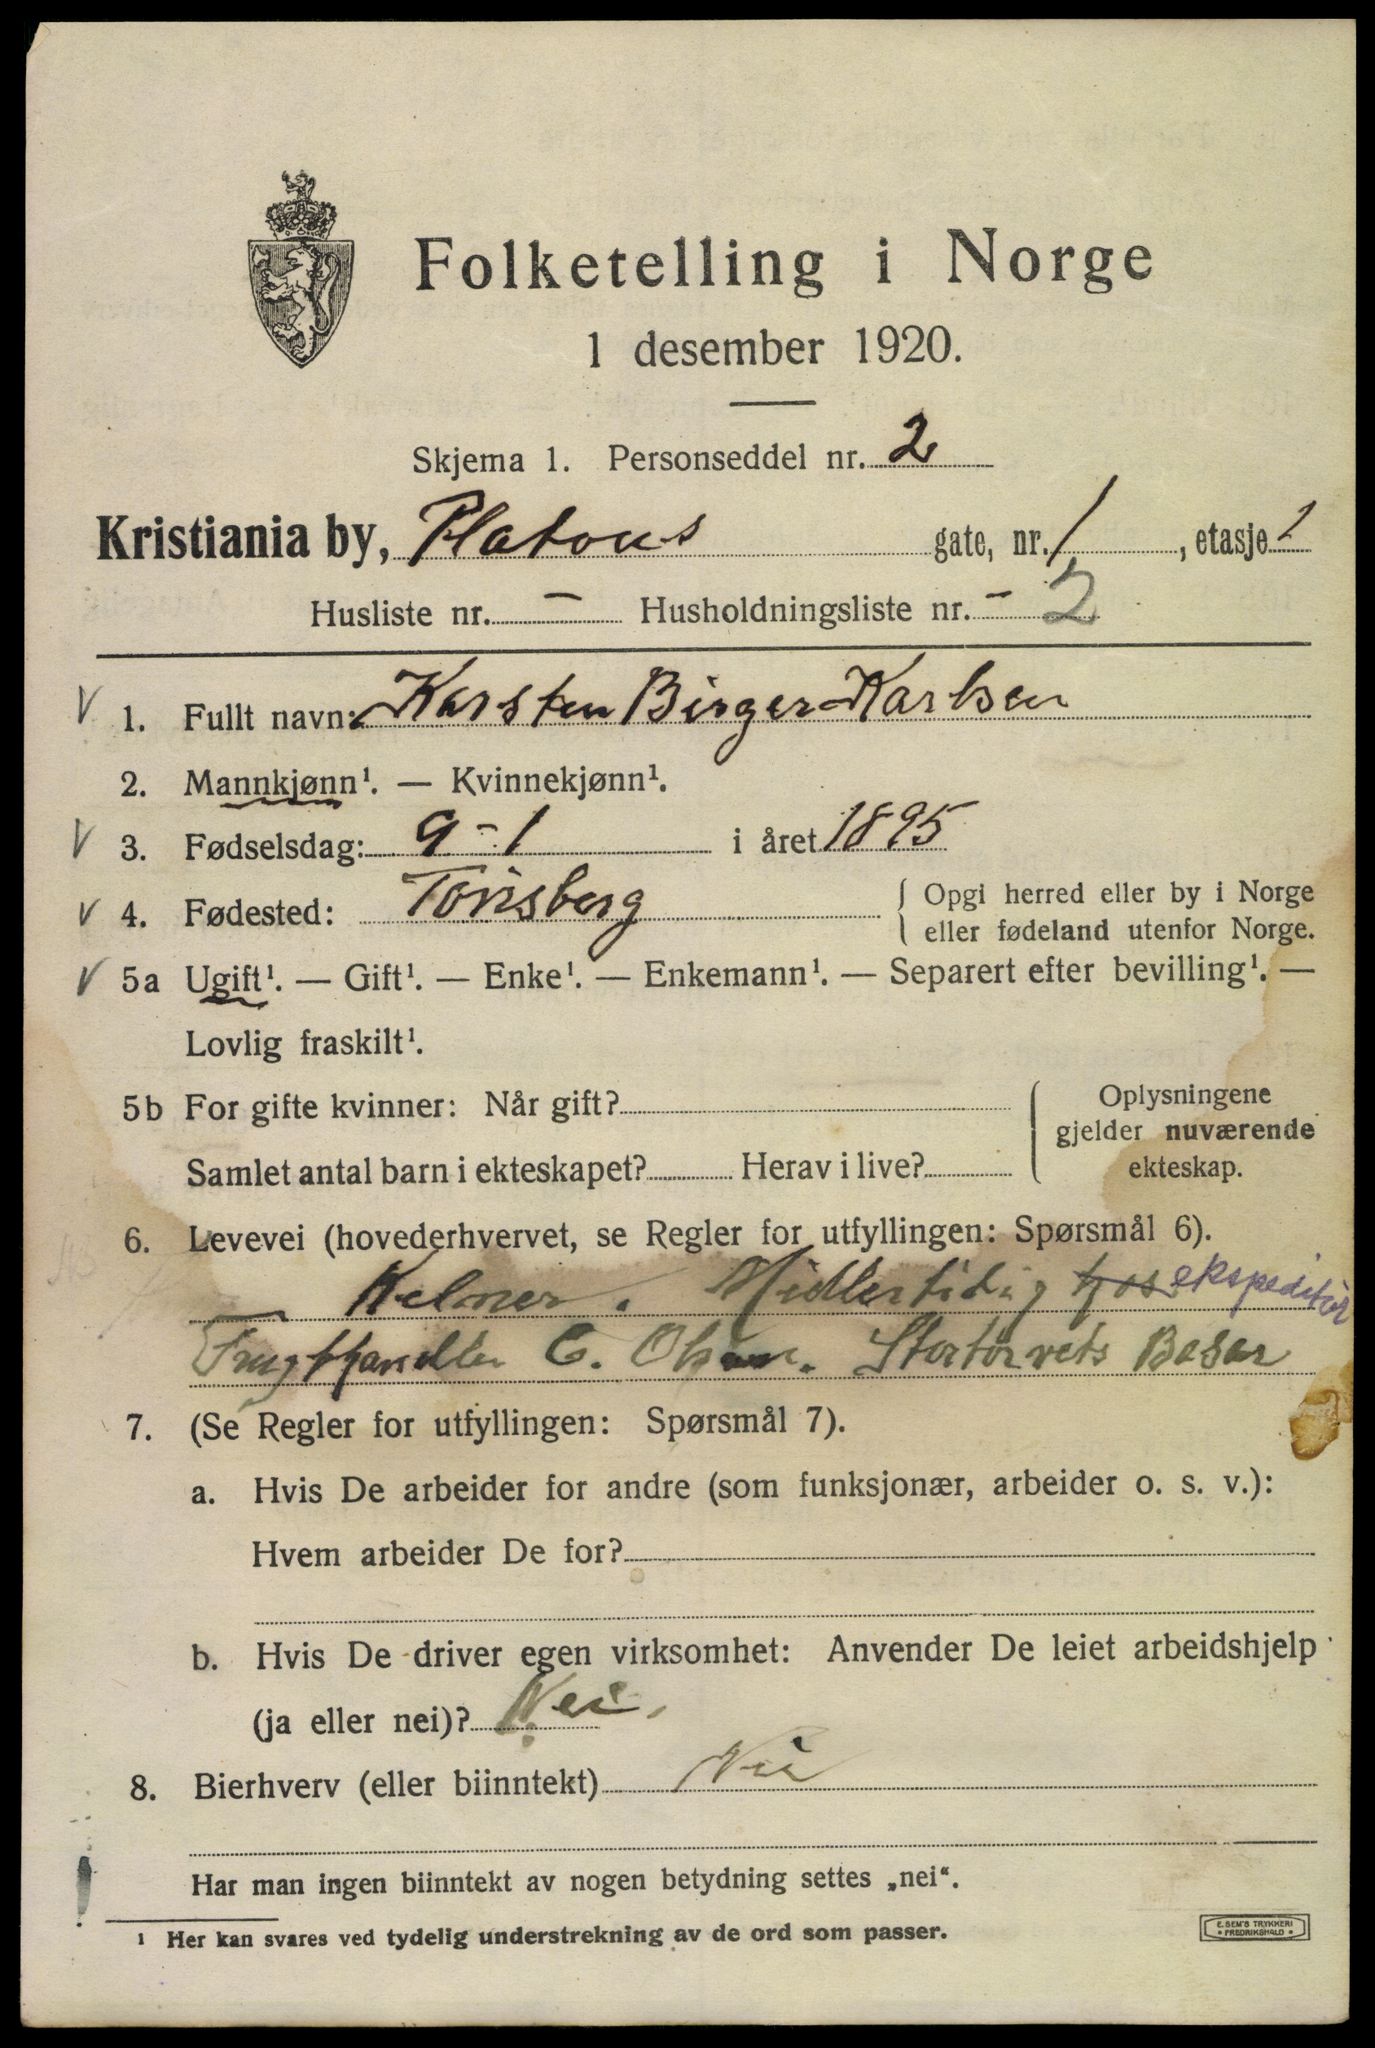 Folketelling i Norge
1 desember 1920.
Skjema 1. Personseddel nr. 2
Kristiania by, Platous gate, nr. 1, etasje 1
Husliste nr. – Husholdningsliste nr. – 2
V 1. Fullt navn: Karsten Birger Karlsen
2. Mannkjønn¹. — Kvinnekjønn¹.
V 3. Fødselsdag: 9-1 i året 1895
V 4. Fødested: Tønsberg { Opgi herred eller by i Norge
eller fødeland utenfor Norge.
V 5a Ugift¹. — Gift¹. — Enke¹. — Enkemann¹. — Separert efter bevilling¹. —
Lovlig fraskilt¹.
5b For gifte kvinner: Når gift? { Oplysningene
gjelder nuværende
Samlet antal barn i ekteskapet? Herav i live? ekteskap.
6. Levevei (hovederhvervet, se Regler for utfyllingen: Spørsmål 6).
Kelner. Midlertidig hos ekspeditør
Frugthandler C. Olsen. Stortorvets Basar
7. (Se Regler for utfyllingen: Spørsmål 7).
a. Hvis De arbeider for andre (som funksjonær, arbeider o. s. v.):
Hvem arbeider De for?
b. Hvis De driver egen virksomhet: Anvender De leiet arbeidshjelp
(ja eller nei)? Nei.
8. Bierhverv (eller biinntekt) Nei
Har man ingen biinntekt av nogen betydning settes „nei“.
¹ Her kan svares ved tydelig understrekning av de ord som passer.
E. SEM'S TRYKKERI
• FREDRIKSHALD •